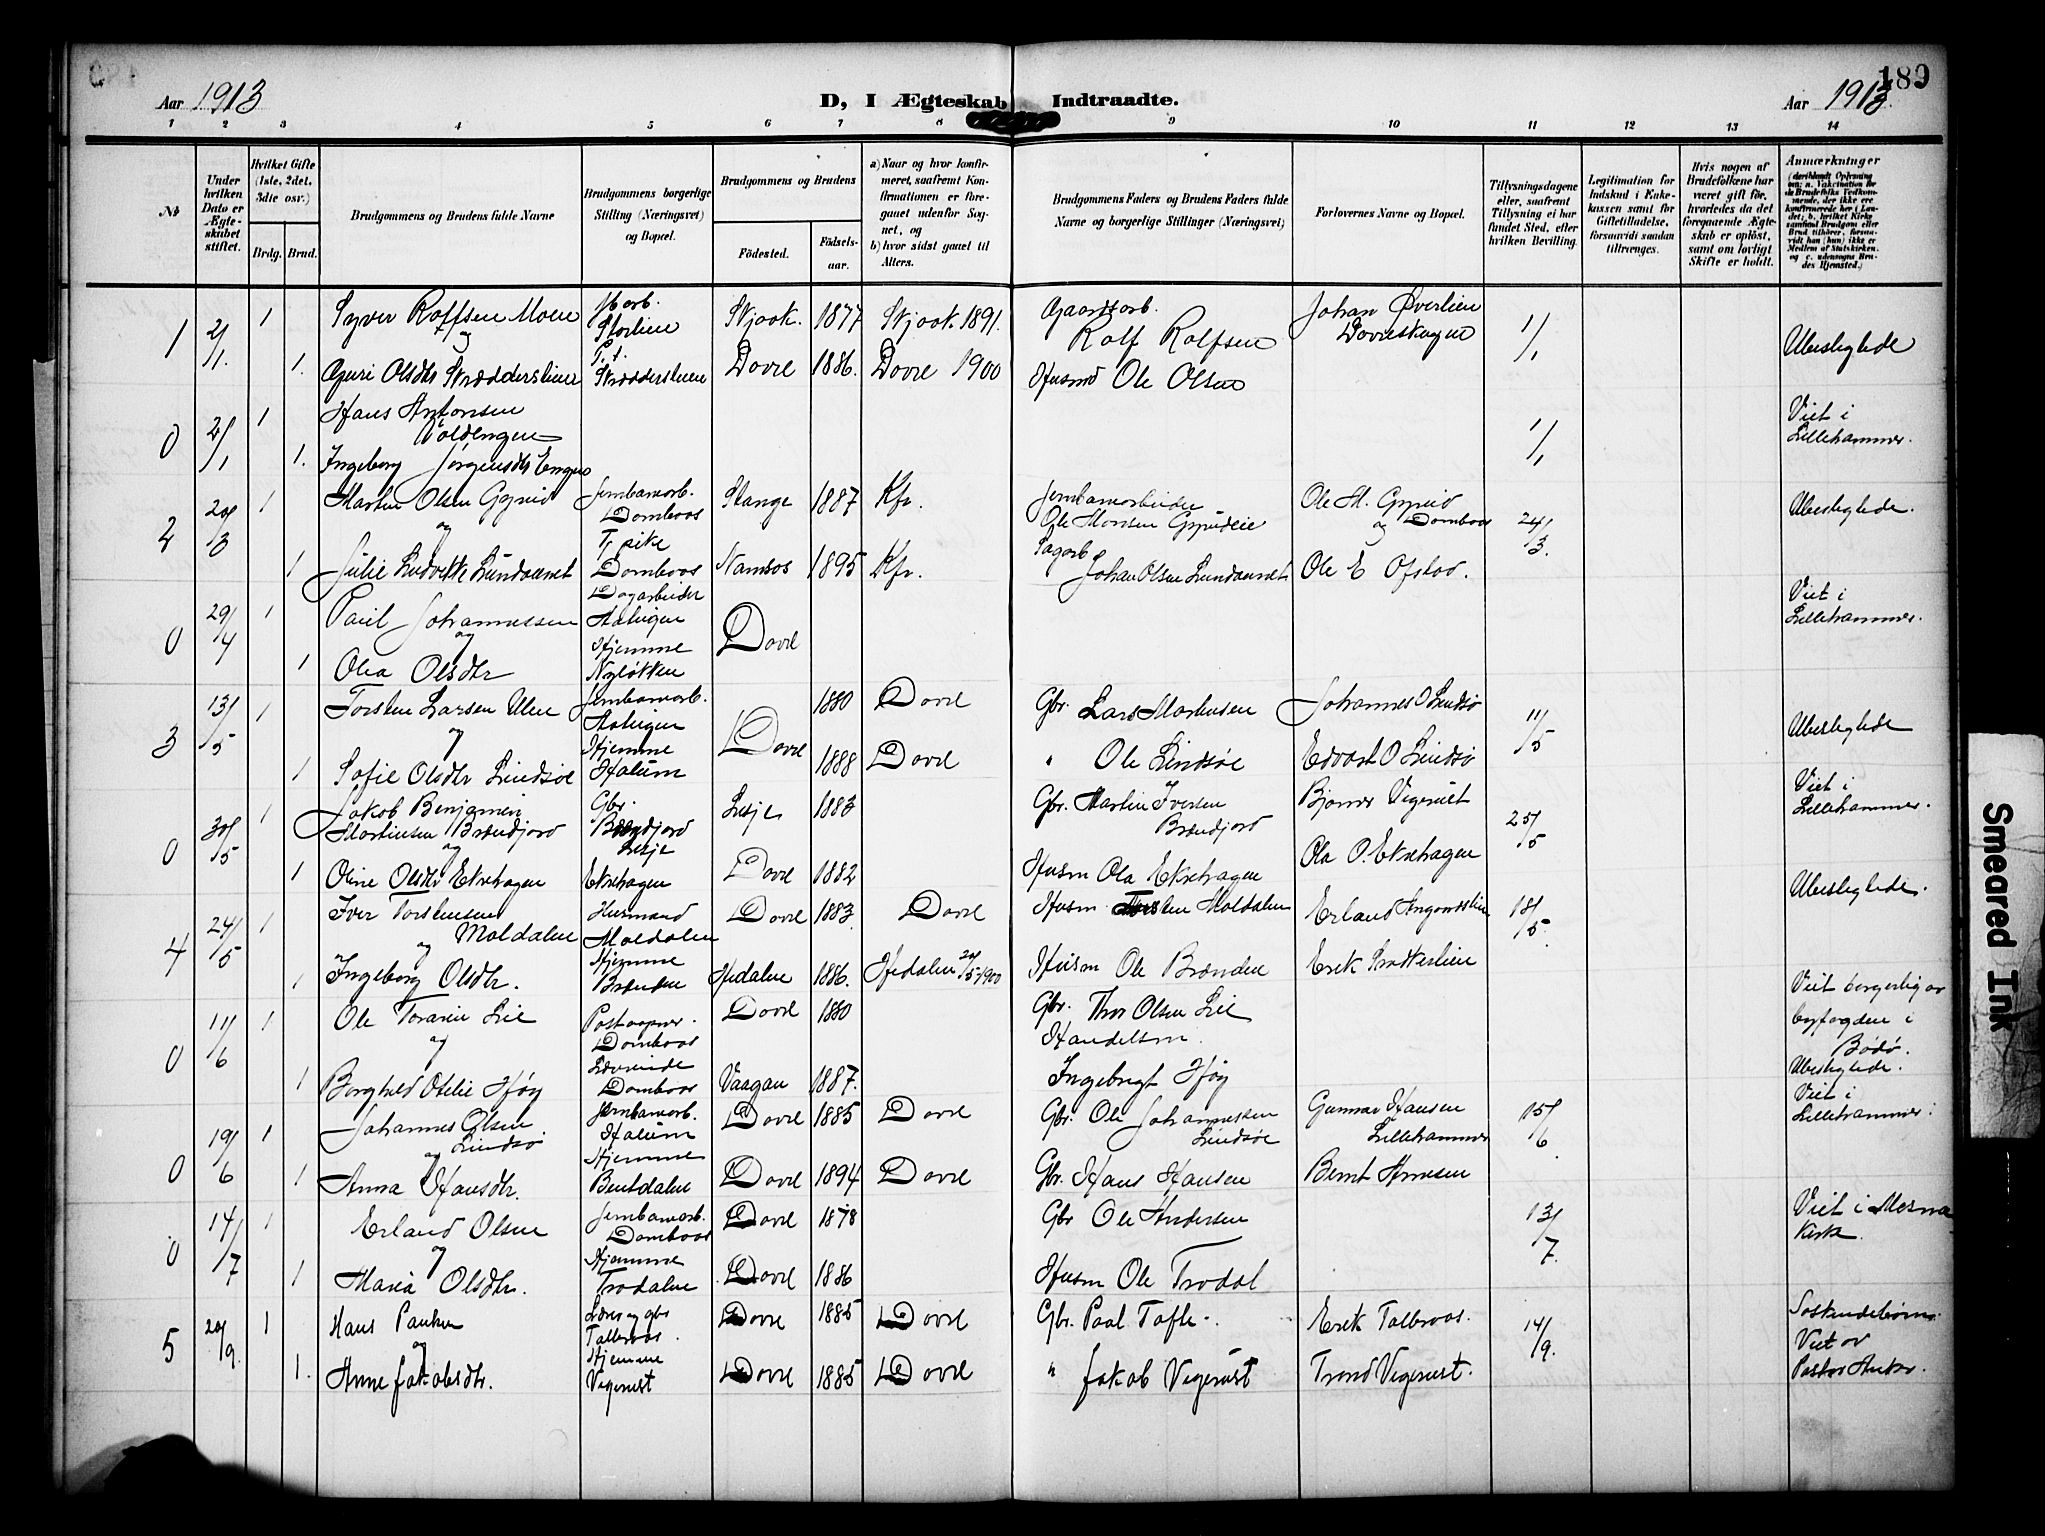 189
Aar 1913
D, I Ægteskab Indtraadte.
Aar 1913
1 2 3 4 5 6 7 8 9 10 11 12 13 14
№
Under hvilken Dato er Ægteskabet stiftet.
Hvilket Gifte (1ste, 2det, 3die osv.)
Brdg. Brud.
Brudgommens og Brudens fulde Navne
Brudgommens borgerlige Stilling (Næringsvei) og Bopæl.
Brudgommens og Brudens
Fødested.
Fødselsaar.
a) Naar og hvor konfirmeret, saafremt Konfirmationen er foregaaet udenfor Sognet, og
b) hvor sidst gaaet til Alters.
Brudgommens Faders og Brudens Faders fulde Navne og borgerlige Stillinger (Næringsvei)
Forlovernes Navne og Bopæl.
Tillysningsdagene eller, saafremt Tillysning ei har fundet Sted, efter hvilken Bevilling.
Legitimation for Indskud i Enkekassen samt for Giftetilladelse, forsaavidt saadan tiltrænges.
Hvis nogen af Brudefolkene har været gift før, hvorledes da det foregaaende Ægteskab er opløst, samt om lovligt Skifte er holdt.
Anmærkninger
(deriblandt Oplysning om: a. Vakcination for de Brudefolks Vedkommende, der ikke ere konfirmerede her i Landet; b. hvilket Kirkesamfund Brudgom eller Brud tilhører, forsaavidt han (hun) ikke er Medlem af Statskirken, og c. udensogns Brudes Hjemsted.)
1 2/1. 1 Syver Rolfsen Moen Storlien Skjaak. 1877 Skjaak 1891. Gaardsarb. Rolf Rolfsen Johan Øverlien Dovreskogen 1/1 Ubeslegtede
og
1. Guri Olsdtr Skræddersliene Skræddersliene Dovre 1886. Dovre 1900 Husmd Ole Olsen
0 2/1 1 Hans Antonsen 1/1 Viet i Lillehammer.
1. Ingeborg Jørgensdtr Engen
2 1 Martin Olsen Jernbanearb. Dombaas Stange 1887 Kfr. Jernbanearbeider Ole Monsen Ole M. og Dombaas 24/3. Ubeslegtede.
og
1 Julie Ludvikke Lundaunet Dombaas Namsos 1895 Kfr. Sagarb Johan Olsen Lundaunet Ole E Ofstad.
0 29/4 1 Paul Johannessen Dagarbeider Dovre Viet i Lillehammer.
og
1 Olea Olsdtr Hjemme Nyløkken
3 13/5 1 Torsten Larsen Ulen Jernbanearb. Dovre 1880 Dovre Gbr. Lars Mortensen Johannes O Lindsø 11/5 Ubeslegtede
og
1 Sofie Olsdtr Lindsøe Hjemme 1888 Dovre " Ole Lindsøe Edvart O Lindsø
0 30/5 1 Jakob Benjamin Mortinsen Brændjord Gbr. Brændjord Lesje Lesje 1883 Gbr. Martin Iversen Brændjord Bjarne Vigerust 25/5 Viet i Lillehammer.
og
1 Oline Olsdtr Ekrehagen Ekrehagen Dovre 1882 Husm Ola Ekrehagen Ola O. Ekrehagen
4 24/5 1 Iver Torstensen Moldalen Husmand Moldalen Dovre 1883. Dovre Husm. Torsten Moldalen Erland 18/5. Ubeslegtede.
og
1 Ingeborg Olsdtr. Hjemme Brænden Hedalen 1886. Hedalen 1900 Husm Ole Brænden Erik
0 11/6 1 Ole Lie Postaapner. Dombaas Dovre 1880 Gbr. Thor Olsen Lie Viet borgerlig av byfogden i Bodø. Ubeslegtede.
og
1 Borghild Otelie Høy Lærerinde Dombaas Vaagan 1887. Handelsm. Ingebrigt Høy
0 19/6 1 Johannes Olsen Lindsø Jernbanearb. Dovre 1885 Dovre Gbr. Ole Johannessen Lindsøe Gunnar Hansen Lillehammer 15/6 Viet i Lillehammer.
og
1 Anna Hansdtr. Hjemme Bentdalen Dovre 1894 Dovre Gbr. Hans Hansen Bernt Arnesen
0 14/7 1 Erland Olsen Jernbanearb. Dombaas Dovre 1878 Gbr Ole Andersen 13/7. Viet i Mesna Kirke.
og
1 Maria Olsdtr. Hjemme Trodalen Dovre 1886 Husm Ole Trodal
5 20/9. 1 Hans Paulsen Lærer og gbr Talleraas. Dovre 1885 Dovre Gbr. Paal Tofte. Erik Talleraas. 14/9. Søskendebørn. Viet av Pastor Anker.
og
1. Anne Jakobsdtr. Hjemme Vigerust Dovre 1885 Dovre " Jakob Vigerust Trond Vigerust.
Smeared Ink